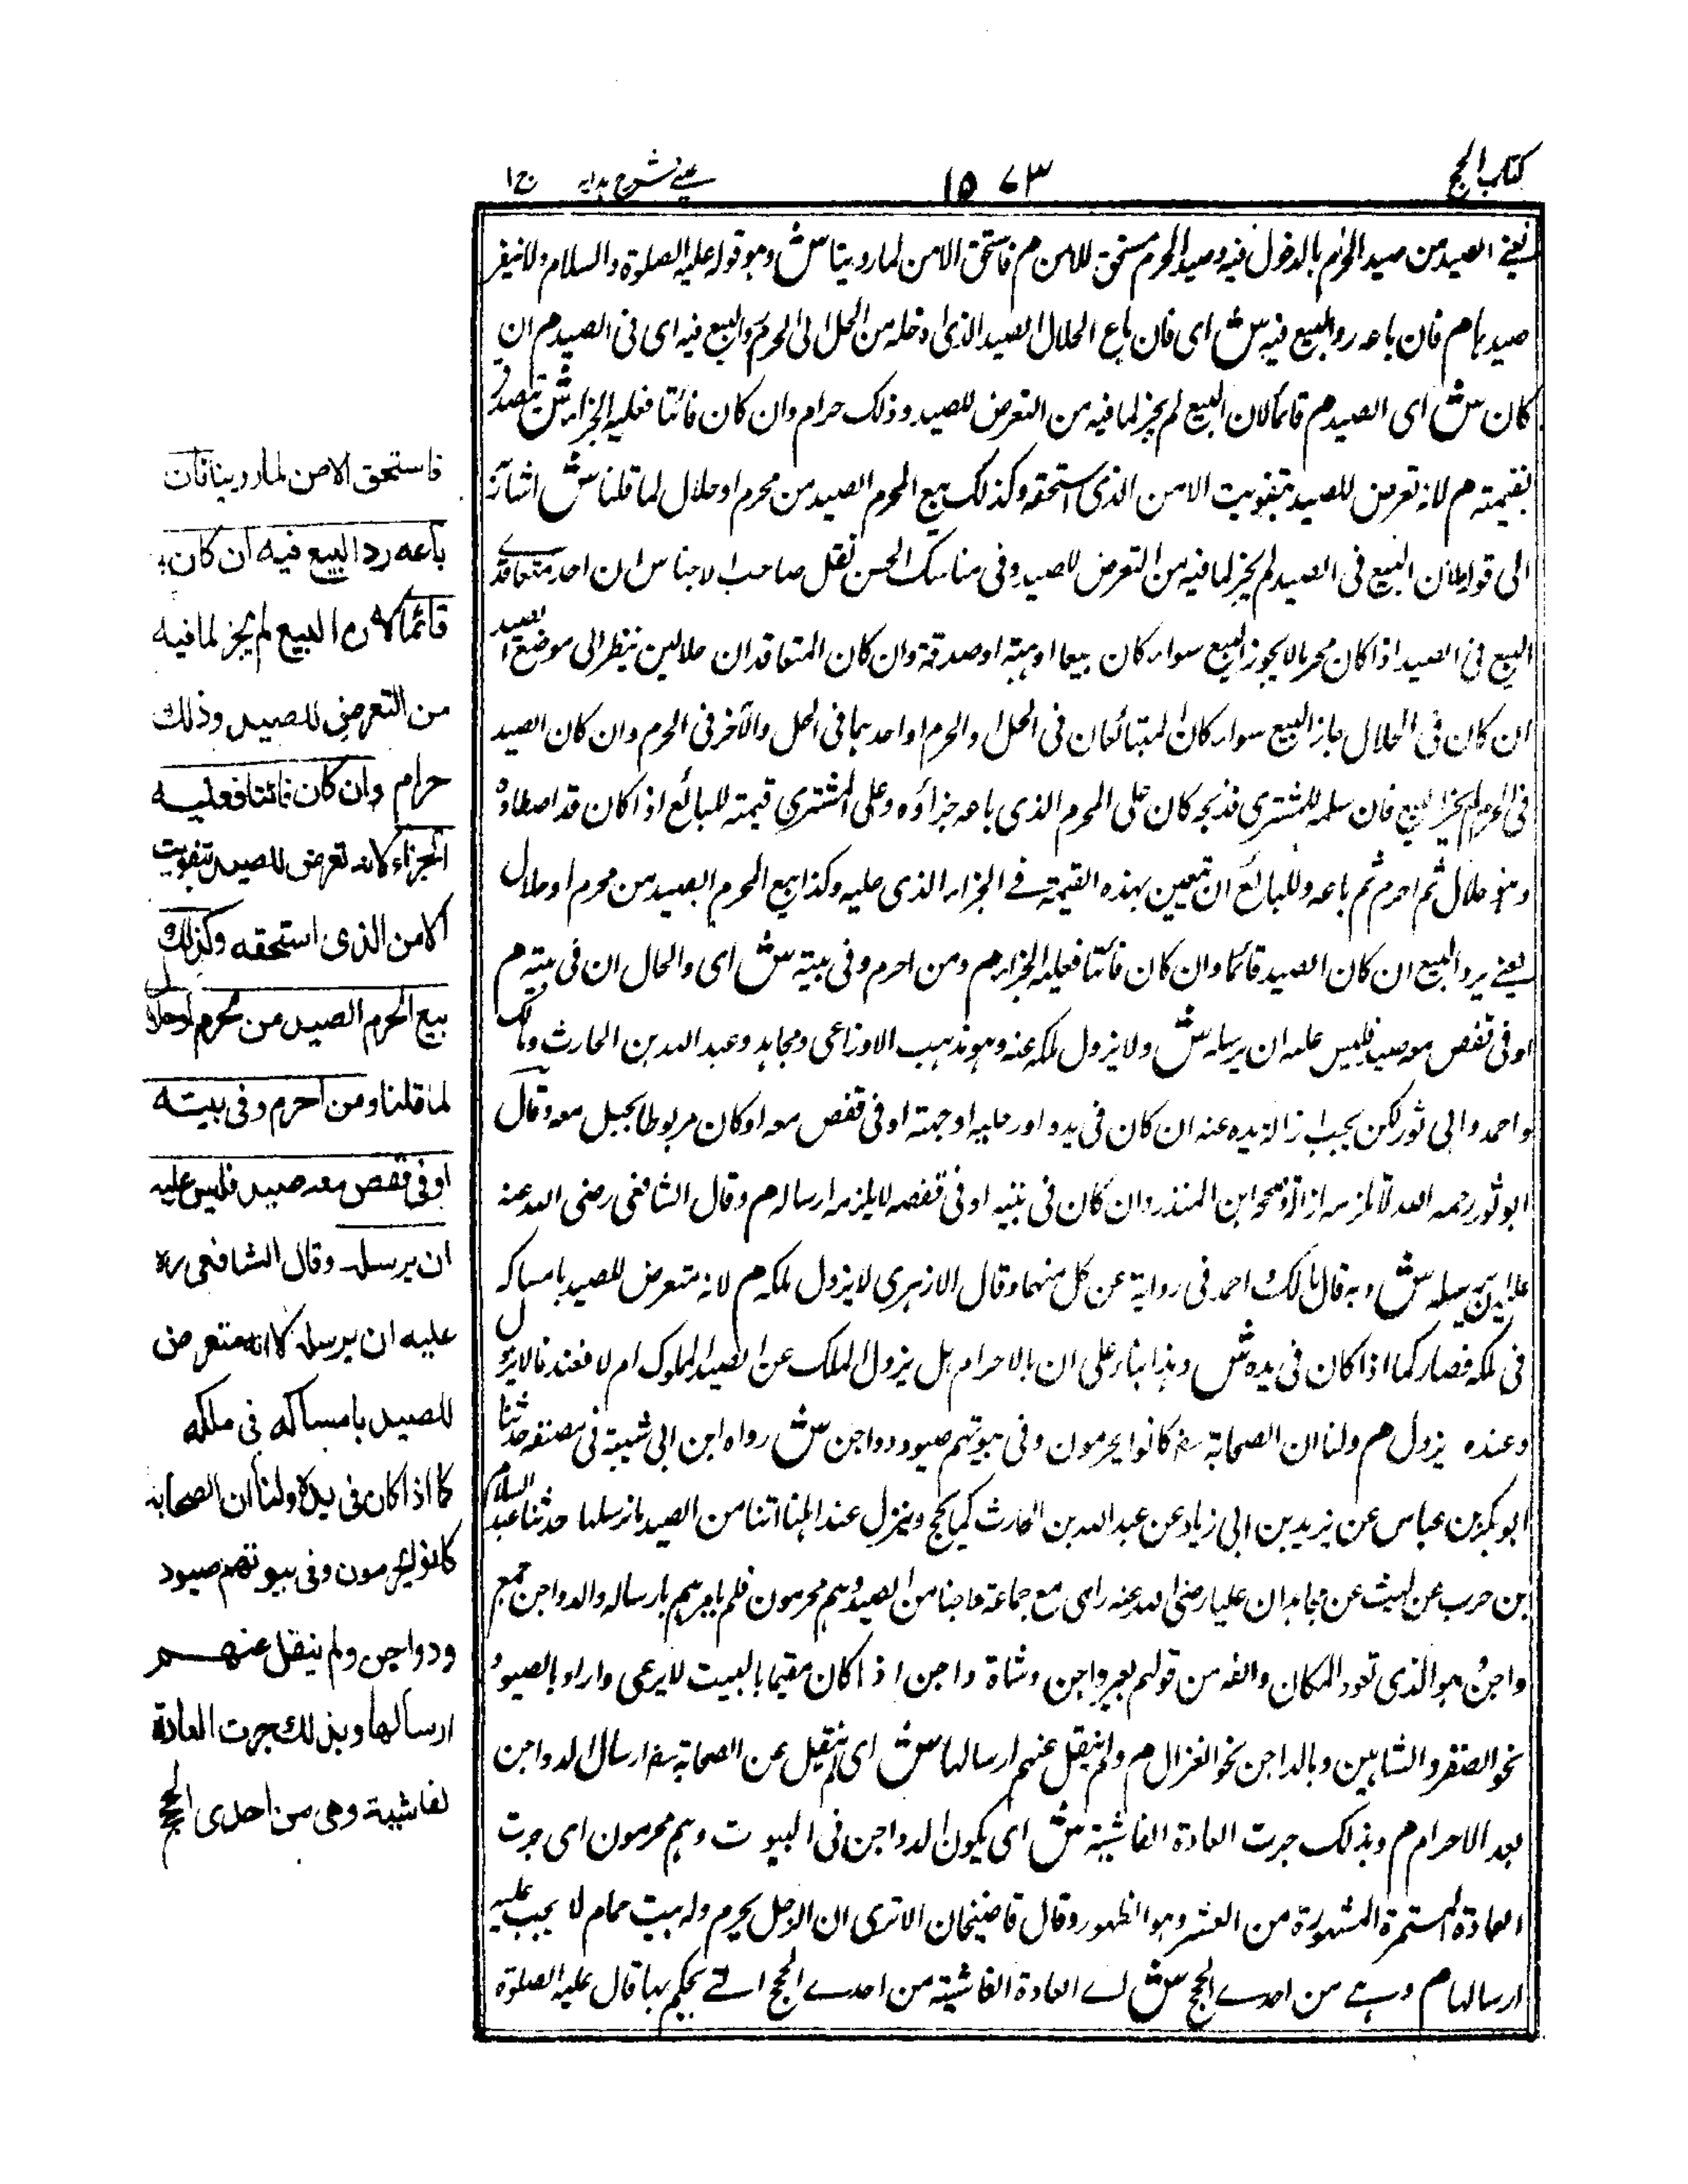 كتاب الحج
١٥٧٣
عينى شرح هدايه ج ١
يعنى الصيد من صيد الحرم بالدخول فيه وصيد الحرم مستحق للامن م فاستحق الامن لما روينا ش وهو قوله عليه الصلوة والسلام ولا ينفر
صيدها م فان باعه رد البيع فيه ش اى فان باع الحلال الصيد الذى ادخله من الحل الى الحرم رد البيع فيه اى فى الصيد م ان
كان ش اى الصيد م قائما لان البيع لم يجز لما فيه من التعرض للصيد وذلك حرام وان كان فائتا فعليه الجزاء ش يتصدق
بقيمته م لانه تعرض للصيد بتفويت الامن الذى استحقه وكذلك بيع المحرم الصيد من محرم او حلال لما قلنا ش اشارة
الى قوله لان البيع فى الصيد لم يجز لما فيه من التعرض للصيد وفى مناسك الحسن نقل صاحب الاجناس ان احد متعاقدى
البيع فى الصيد اذا كان محرما لا يجوز البيع سواء كان بيعا او هبة او صدقة وان كان المتعاقدان حلالين ينظر الى موضع الصيد
ان كان فى الحلال جاز البيع سواء كان المتبائعان فى الحل والحرم او احدهما فى الحل والآخر فى الحرم وان كان الصيد
فى الحرم لم يجز البيع فان سلمه للمشترى فذبحه كان على المحرم الذى باعه جزاؤه وعلى المشترى قيمته للبائع اذا كان قد اصطاده
وهو حلال ثم احرم ثم باعه وللبائع ان يتعين بهذه القيمة فى الجزاء الذى عليه وكذا بيع المحرم الصيد من محرم او حلال
يعنى يرد البيع ان كان الصيد قائما وان كان فائتا فعليه الجزاء م ومن احرم وفى بيته ش اى والحال ان فى بيته م
او فى قفص معه صيد فليس عليه ان يرسله ش ولا يزول ملكه عنه وهو مذهب الاوزاعى ومجاهد وعبد الله بن الحارث ومالك
واحمد وابى ثور لكن يجب ازالة يده عنه ان كان فى يده او رحله او جهته او فى قفص معه او كان مربوطا بحبل معه وقال
ابو ثور رحمه الله لا يلزمه ازالة ونحوه ابن المنذر وان كان فى بيته او فى قفصه لا يلزمه ارساله م وقال الشافعى رضى الله عنه
عليه ان يرسله ش وبه قال مالك واحمد فى رواية عن كل منهما وقال الازهرى لا يزول ملكه م لانه متعرض للصيد بامساكه
فى ملكه فصار كما اذا كان فى يده ش وهذا بناء على ان بالاحرام هل يزول الملك عن الصيد المملوك ام لا فعندنا لا يزول
وعنده يزول م ولنا ان الصحابة رض كانوا يحرمون وفى بيوتهم صيود ودواجن ش رواه ابن ابى شيبة فى مصنفه حدثنا
ابو بكر بن عباس عن يزيد بن ابى زياد عن عبد الله بن الحارث كنا نحج ونترك عند اهلنا اشياء من الصيد ما نرسلها حدثنا عبد السلام
بن حرب عن ليث عن مجاهد ان عليا رضى الله عنه راى مع جماعة داجنا من الصيد وهم محرمون فلم يامرهم بارساله والدواجن جمع
داجن وهو الذى تعود المكان والفه من قولهم بعير داجن وشاة داجن اذا كان مقيما بالبيت لا يرعى واراد بالصيود
نحو الصقر والشاهين وبالداجن نحو الغزال م ولم ينقل عنهم ارسالها ش اى لم ينقل عن الصحابة رض ارسال الدواجن
بعد الاحرام م وبذلك جرت العادة الفاشية ش اى يكون الدواجن فى البيوت وهم محرمون اى جرت
العادة المستمرة المشهورة من الفشو وهو الظهور وقال قاضيخان الا ترى ان الرجل يحرم وله بيت حمام لا يجب عليه
ارسالها م وهى من احدى الحجج ش اى العادة الفاشية من احدى الحجج التى يحكم بها قال عليه الصلوة
فاستحق الامن لما روينا فان
باعه رد البيع فيه ان كان
قائما لان البيع لم يجز لما فيه
من التعرض للصيد وذلك
حرام وان كان فائتا فعليه
الجزاء لانه تعرض للصيد بتفويت
الامن الذى استحقه وكذلك
بيع المحرم الصيد من محرم او حلال
لما قلنا ومن احرم وفى بيته
او فى قفص معه صيد فليس عليه
ان يرسله وقال الشافعى رح
عليه ان يرسله لانه متعرض
للصيد بامساكه فى ملكه
كما اذا كان فى يده ولنا ان الصحابة
كانوا يحرمون وفى بيوتهم صيود
ودواجن ولم ينقل عنهم
ارسالها وبذلك جرت العادة
لفاشية وهى من احدى الحجج